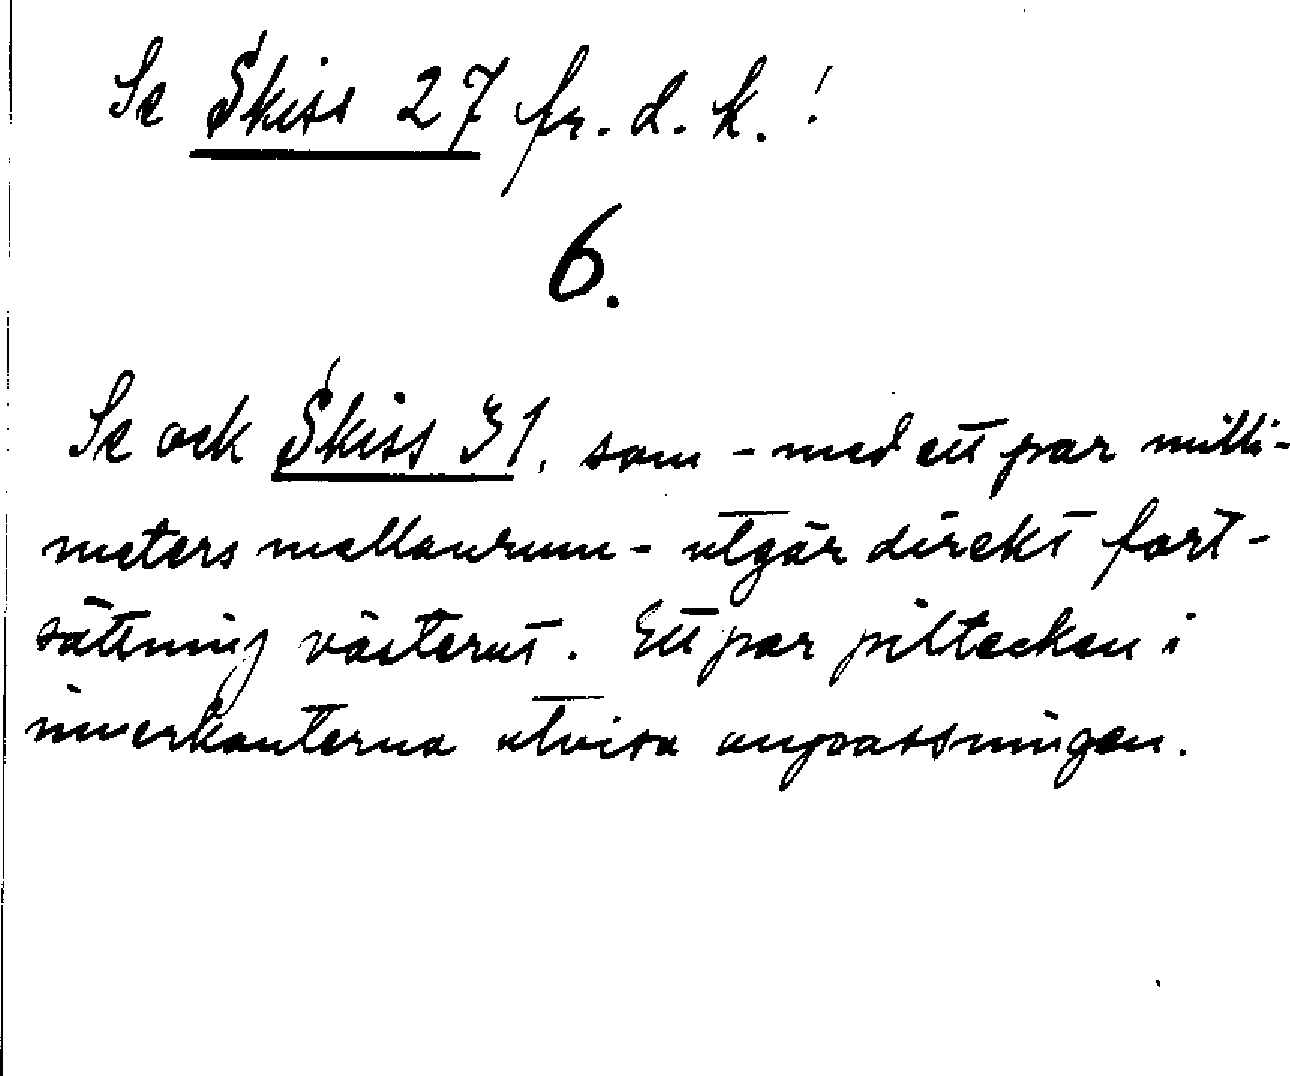 Se Skiss 27 fr. d. k.!
6.
Se ock Skiss 31, som - med ett par milli-
meters mellanrum - utgör direkt fort-
sättning västerut. Ett par piltecken i
innerkanterna utvisa anpassningen.